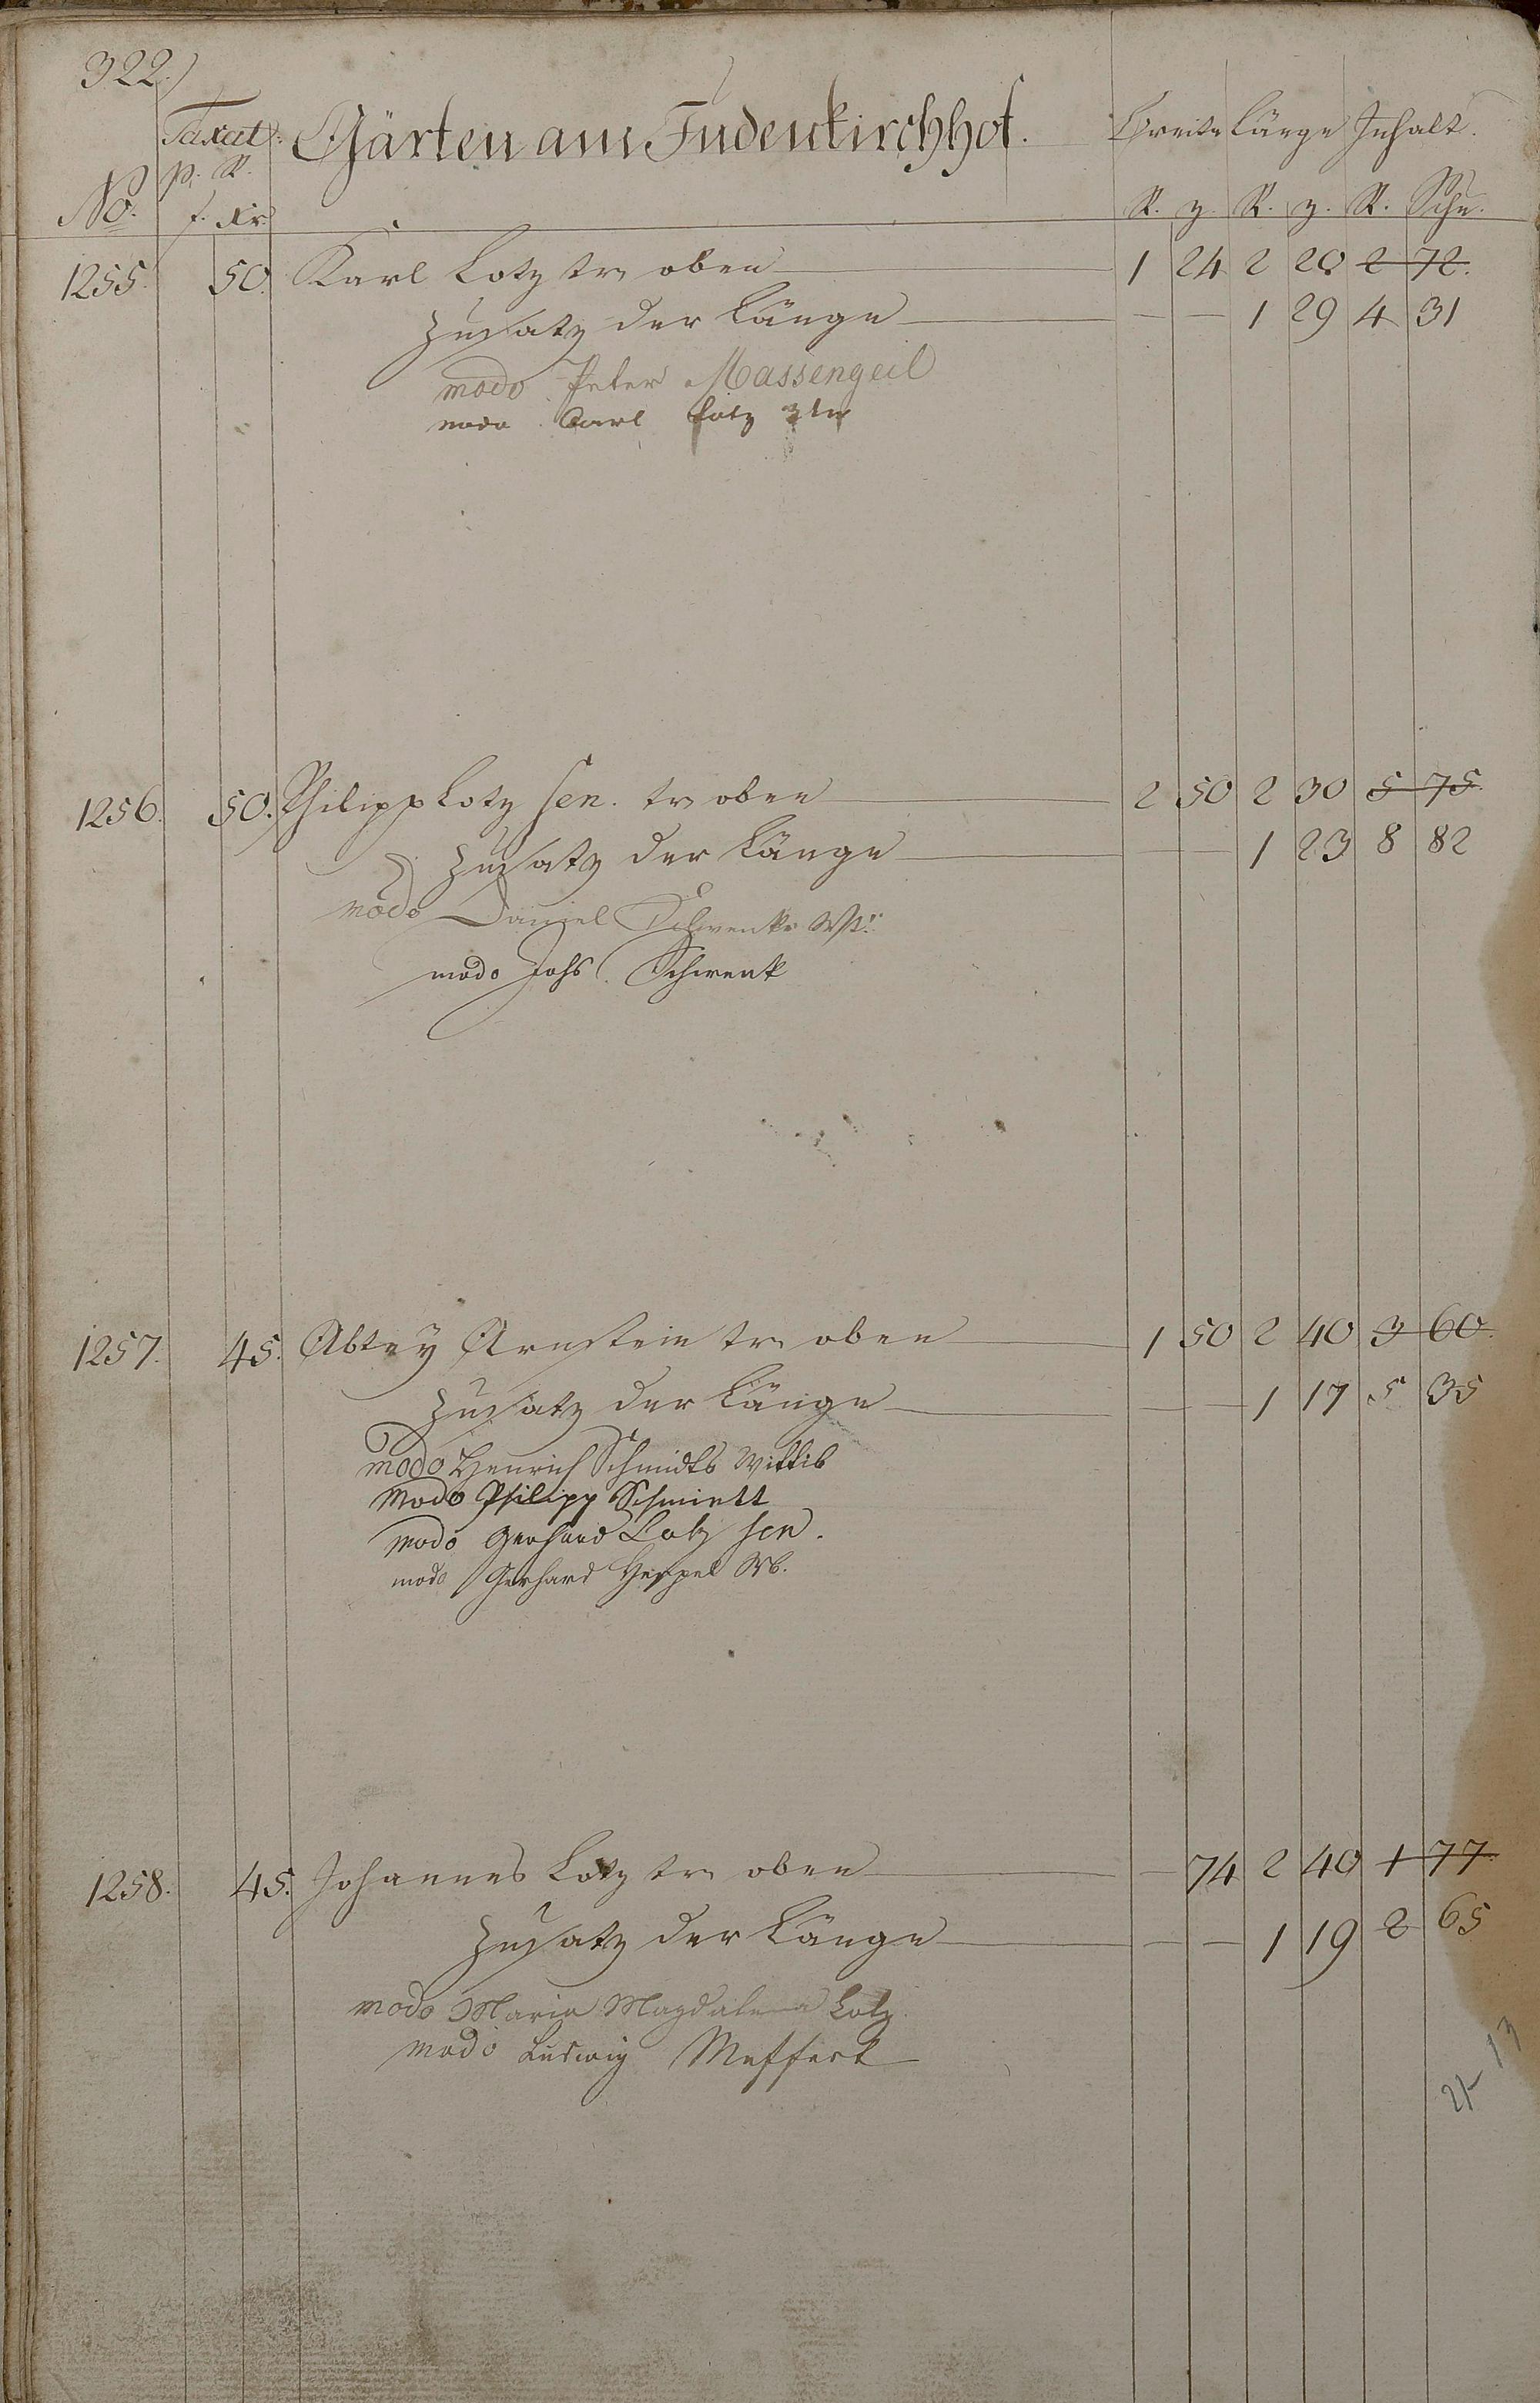 322.)
Taxat. Gärten am Judenkirchhof. Breite Länge Inhalt.
p. R.
No. f. Xr. R. z. R. z. R. Schu.
1255. 50. Karl Lotz tr. oben — 1 24 2 20 2 72.
Zusatz der Länge — — — 1 29 4 31
modo Peter Massengeil
modo Carl Lotz 3ter
1256. 50. Philipp Lotz sen. tr. oben — 2 50 2 30 5 75.
Zusatz der Länge — — — 1 23 8 82
modo Daniel Schwenks Wt.
modo Johs. Schwenk
1257. 45. Abtey Arnstein tr. oben — 1 50 2 40 3 60.
Zusatz der Länge — — — 1 17 5 35
modo Henrich Schmidts Wittib
Modo Philipp Schmitt
modo Gerhard Lotz sen.
modo Gerhard Heppel Wb.
1258. 45. Johannes Lotz tr. oben — — 74 2 40 1 77.
Zusatz der Länge — — — 1 19 2 65
modo Maria Magdalena Lotz.
modo Ludwig Meffert